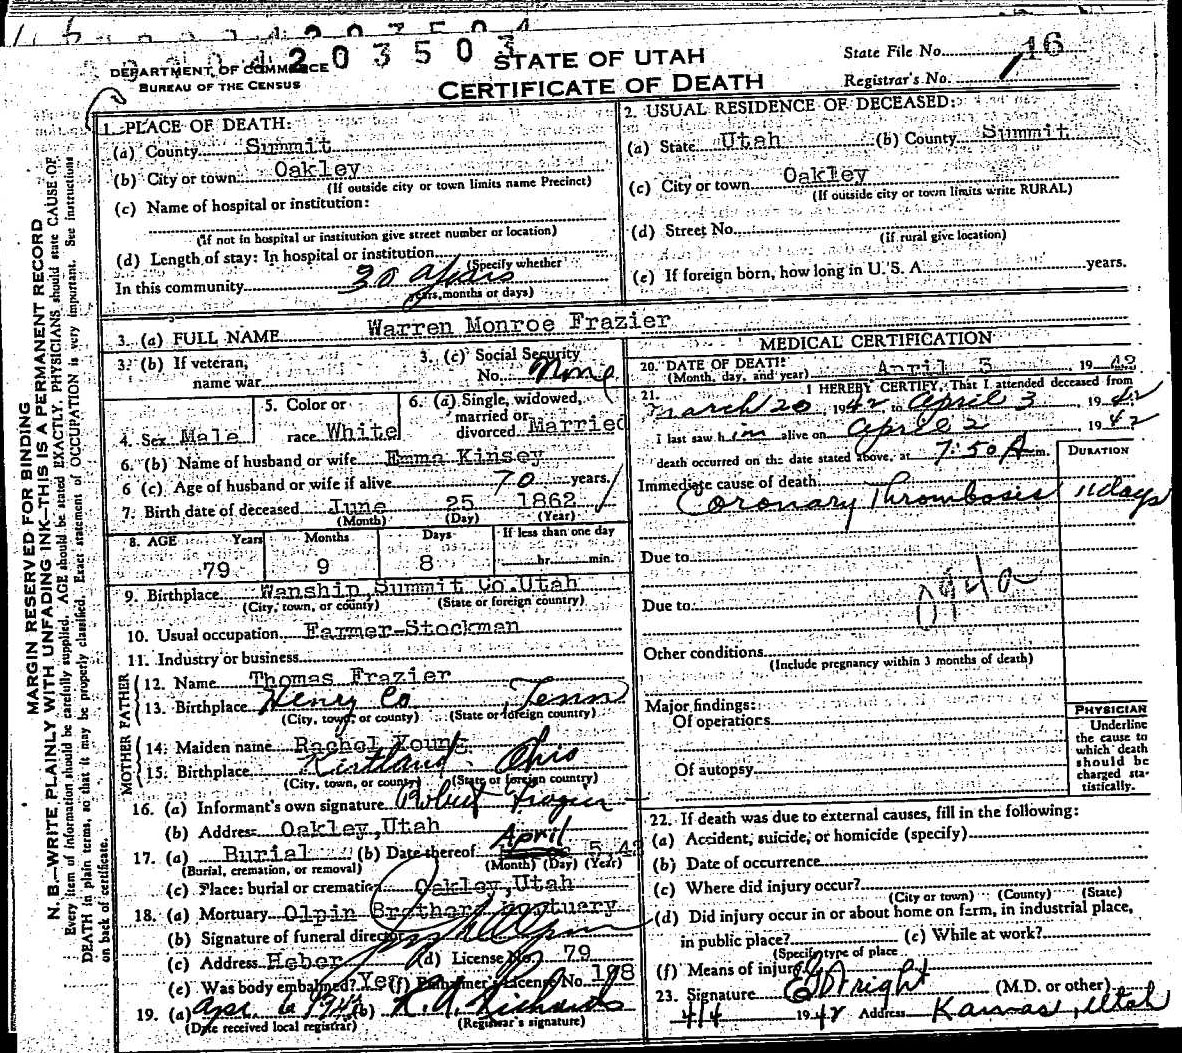 203503
DEPARTMENT OF COMMERCE
BUREAU OF THE CENSUS
STATE OF UTAH
CERTIFICATE OF DEATH
State File No. 16
Registrar's No.
MARGIN RESERVED FOR BINDING
N. B.—WRITE PLAINLY WITH UNFADING INK—THIS IS A PERMANENT RECORD
Every item of information should be carefully supplied. AGE should be stated EXACTLY. PHYSICIANS should state CAUSE OF
DEATH in plain terms, so that it may be properly classified. Exact statement of OCCUPATION is very important. See instructions
on back of certificate.
1. PLACE OF DEATH:
(a) County Summit
(b) City or town Oakley
(If outside city or town limits name Precinct)
(c) Name of hospital or institution:
(If not in hospital or institution give street number or location)
(d) Length of stay: In hospital or institution
(Specify whether
In this community 30 years
years, months or days)
2. USUAL RESIDENCE OF DECEASED:
(a) State Utah (b) County Summit
(c) City or town Oakley
(If outside city or town limits write RURAL)
(d) Street No.
(If rural give location)
(e) If foreign born, how long in U. S. A. years.
3. (a) FULL NAME Warren Monroe Frazier
3. (b) If veteran,
name war
3. (c) Social Security
No. None
4. Sex Male
5. Color or
race White
6. (a) Single, widowed,
married or
divorced Married
6. (b) Name of husband or wife Emma Kinsey
6 (c) Age of husband or wife if alive 70 years.
7. Birth date of deceased June 25 1862
(Month) (Day) (Year)
8. AGE Years Months Days If less than one day
79 9 8 hr. min.
9. Birthplace Wanship, Summit Co. Utah
(City, town, or county) (State or foreign country)
10. Usual occupation Farmer-Stockman
11. Industry or business
FATHER
12. Name Thomas Frazier
13. Birthplace Henry Co Tenn
(City, town, or county) (State or foreign country)
MOTHER
14. Maiden name Rachel Young
15. Birthplace Kirtland Ohio
(City, town, or county) (State or foreign country)
16. (a) Informant's own signature Robert Frazier
(b) Address Oakley, Utah
17. (a) Burial (b) Date thereof April 5, 42
(Burial, cremation, or removal) (Month) (Day) (Year)
(c) Place: burial or cremation Oakley, Utah
18. (a) Mortuary Olpin Brothers Mortuary
(b) Signature of funeral director
(c) Address Heber (d) License No. 79
(e) Was body embalmed? Yes (f) Embalmer's License No. 198
19. (a) Apr. 6 1942 (b) R. A. Richards
(Date received local registrar) (Registrar's signature)
MEDICAL CERTIFICATION
20. DATE OF DEATH: April 3 19 42
(Month, day, and year)
21. I HEREBY CERTIFY, That I attended deceased from
March 20, 1942 to April 3, 1942
I last saw him alive on April 2 1942
death occurred on the date stated above, at 7:50 A m.
DURATION
Immediate cause of death
Coronary Thrombosis 11 days
Due to
Due to
Other conditions
(Include pregnancy within 3 months of death)
Major findings:
Of operations
Of autopsy
PHYSICIAN
Underline
the cause to
which death
should be
charged sta-
tistically.
22. If death was due to external causes, fill in the following:
(a) Accident, suicide, or homicide (specify)
(b) Date of occurrence
(c) Where did injury occur?
(City or town) (County) (State)
(d) Did injury occur in or about home on farm, in industrial place,
in public place? (e) While at work?
(Specify type of place
(f) Means of injury
23. Signature (M.D. or other)
4/4 1942 Address Kamas, Utah